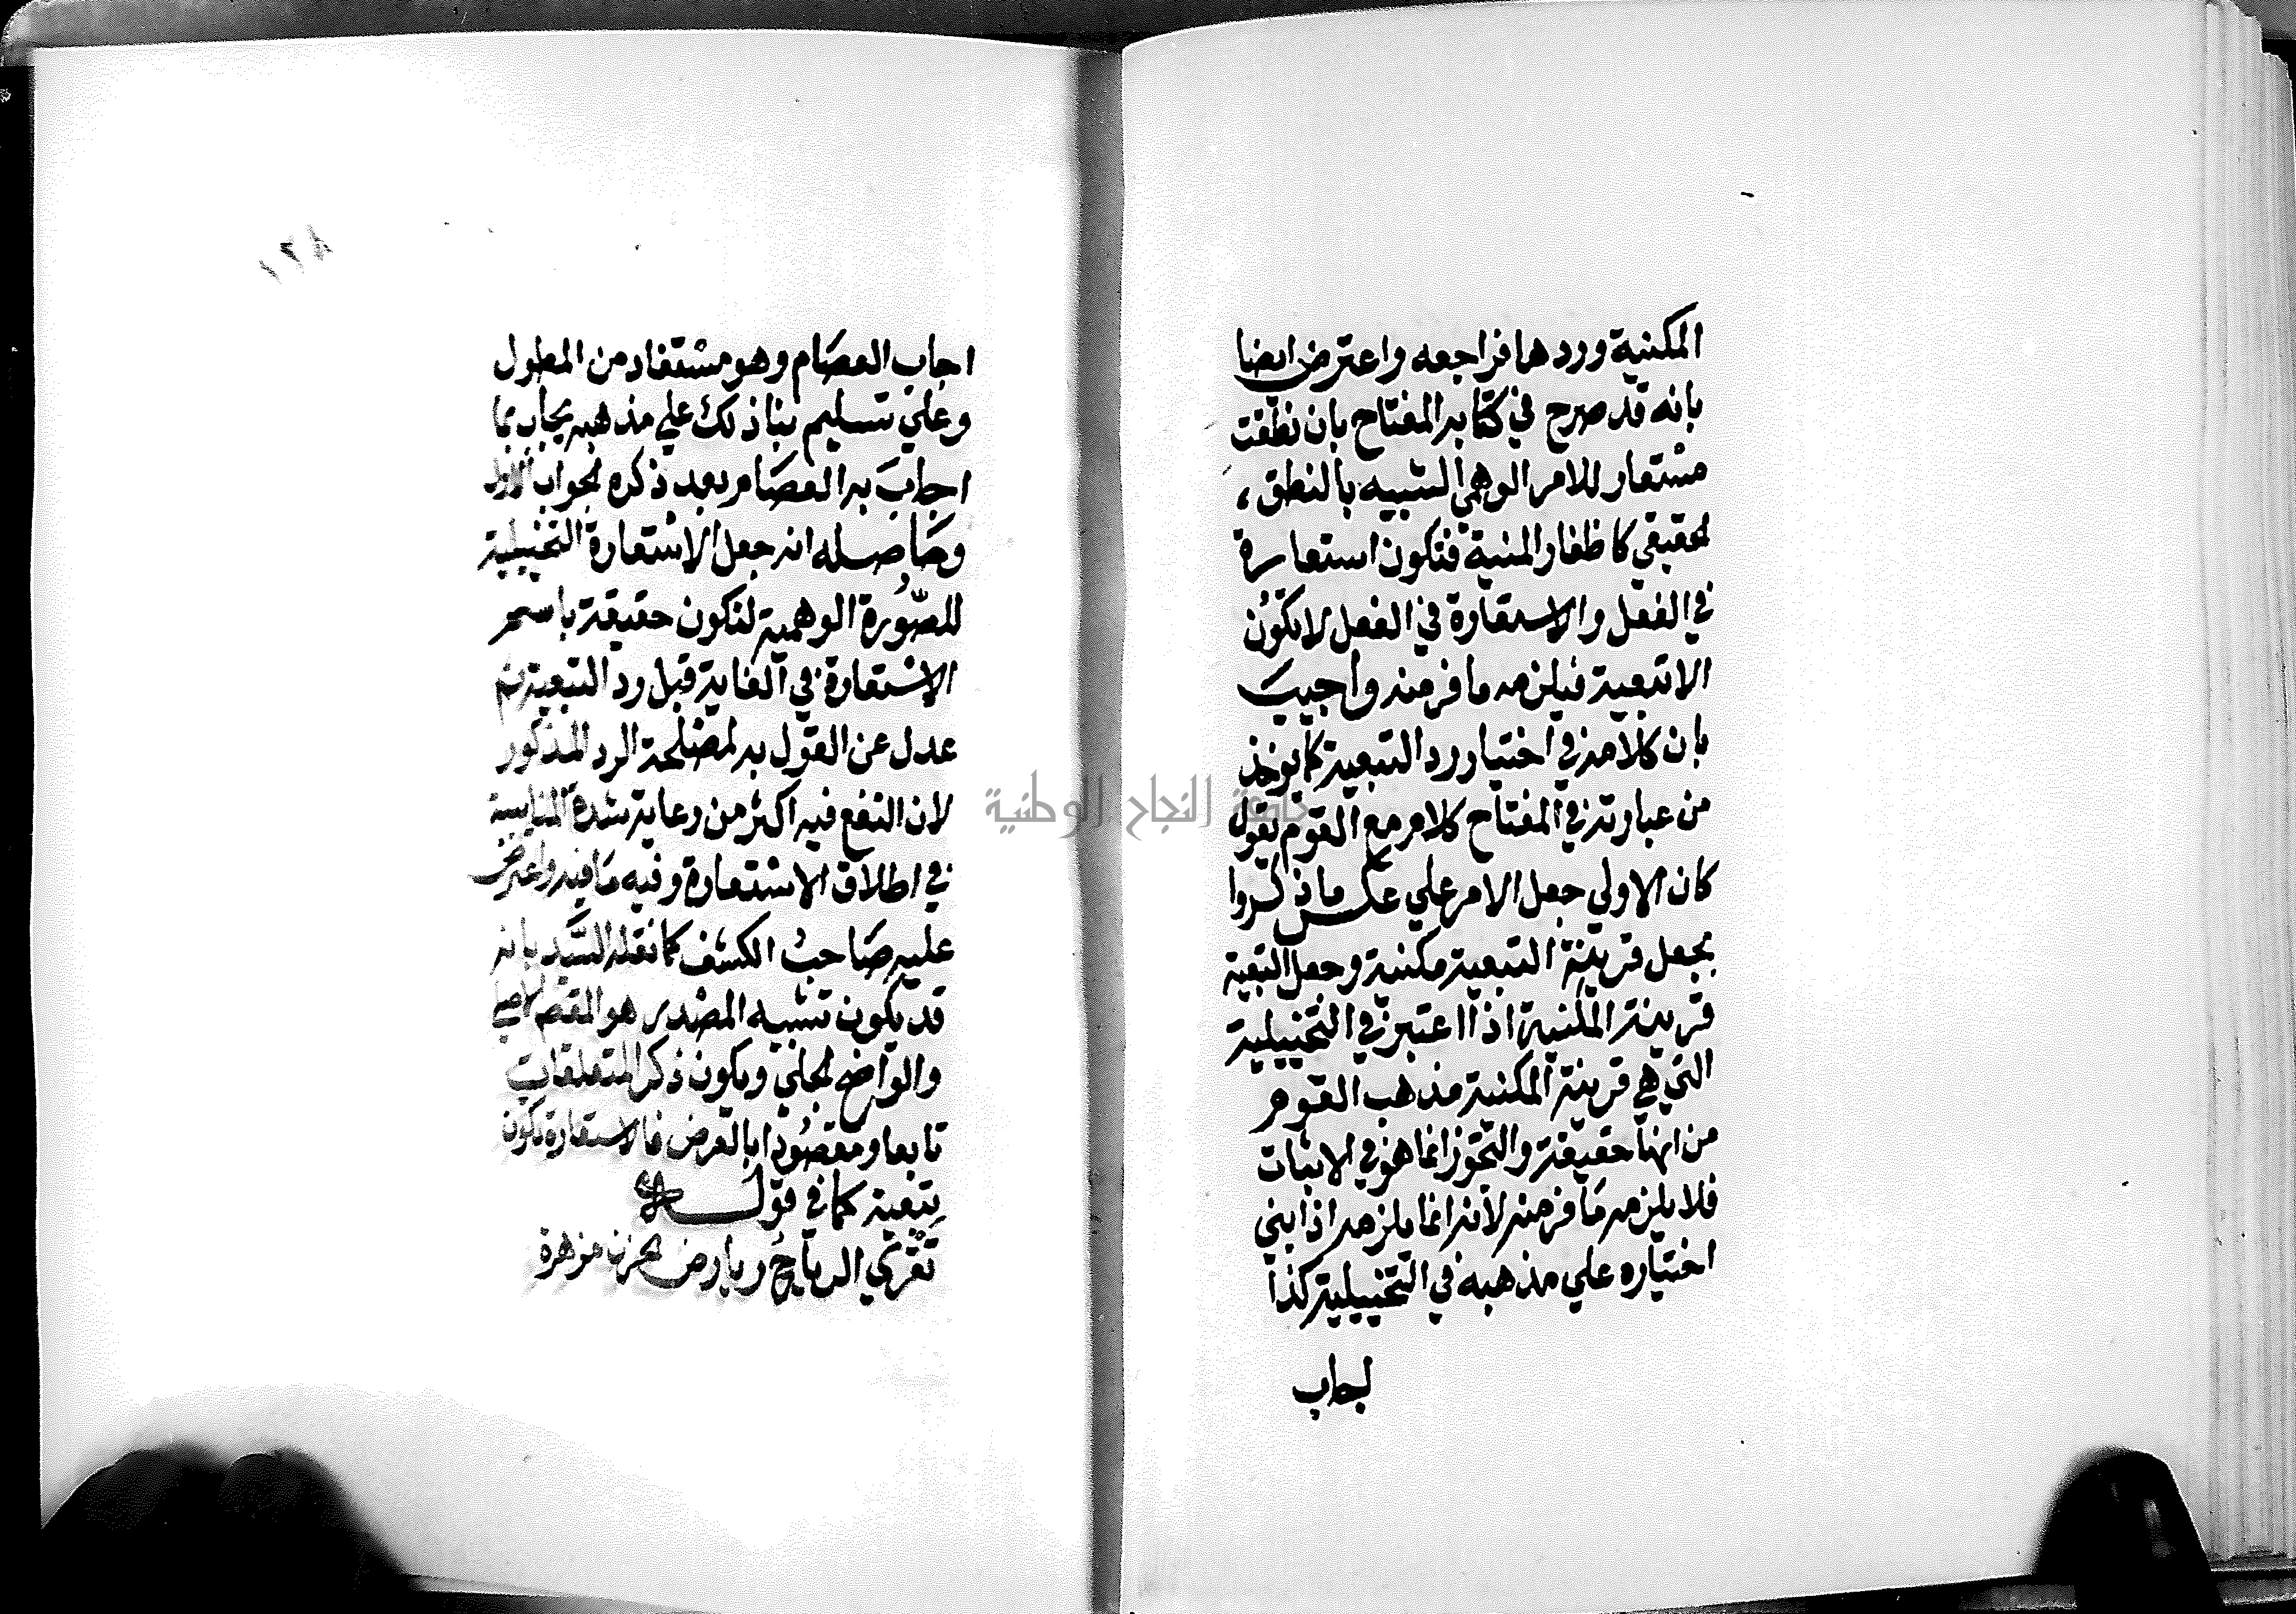 المكنية وردها فراجعه واعترض ايضا
بانه قد صرح في كتابه المفتاح بان نطقت
مستعار للامر الوهمي الشبيه بالنطق،
الحقيقي كاظفار المنية فتكون استعارة
في الفعل والاستعارة في الفعل لا تكون
الا تبعية فيلزمه ما فر منه واجيب
بان كلامه في اختيار رد التبعية كما يوخذ
من عبارته في المفتاح كلام مع القوم يقول
كان الاولي جعل الامر علي عكس ما ذكروا
بجعل قرينة التبعية مكنية وجعل التبعية
قرينة المكنية اذا اعتبر في التخييلية
التي هي قرينة المكنية مذهب القوم
من انها حقيقة والتجوز انما هو في الاثبات
فلا يلزمه ما فر منه لانه انما يلزمه اذا بني
اختياره علي مذهبه في التخييلية كذا
اجاب
١٢٨
اجاب العصام وهو مستفاد من المطول
وعلي تسليم بناذلك علي مذهبه يجاب بما
اجاب به العصام بعد ذكره الجواب الاول
وحاصله انه جعل الاستعارة التخييلية
للصورة الوهمية لتكون حقيقة باسم
الاستعارة في الغاية قبل رد التبعية ثم
عدل عن القول به لمصلحة الرد المذكور
لان النفع فيه اكثر من رعاية شدة المناسبة
في اطلاق الاستعارة وفيه ما فيه واعترض
عليه صاحب الكشف كما نقله السيد بانه
قد يكون تشبيه المصدر هو المقصد الاصلي
والواضح الجلي ويكون ذكر المتعلقات
تابعا ومقصودا بالعرض فالاستعارة تكون
تبعية كما في قوله
تقري الرياح رياض الحزن مزهرة
جامعة النجاح الوطنية